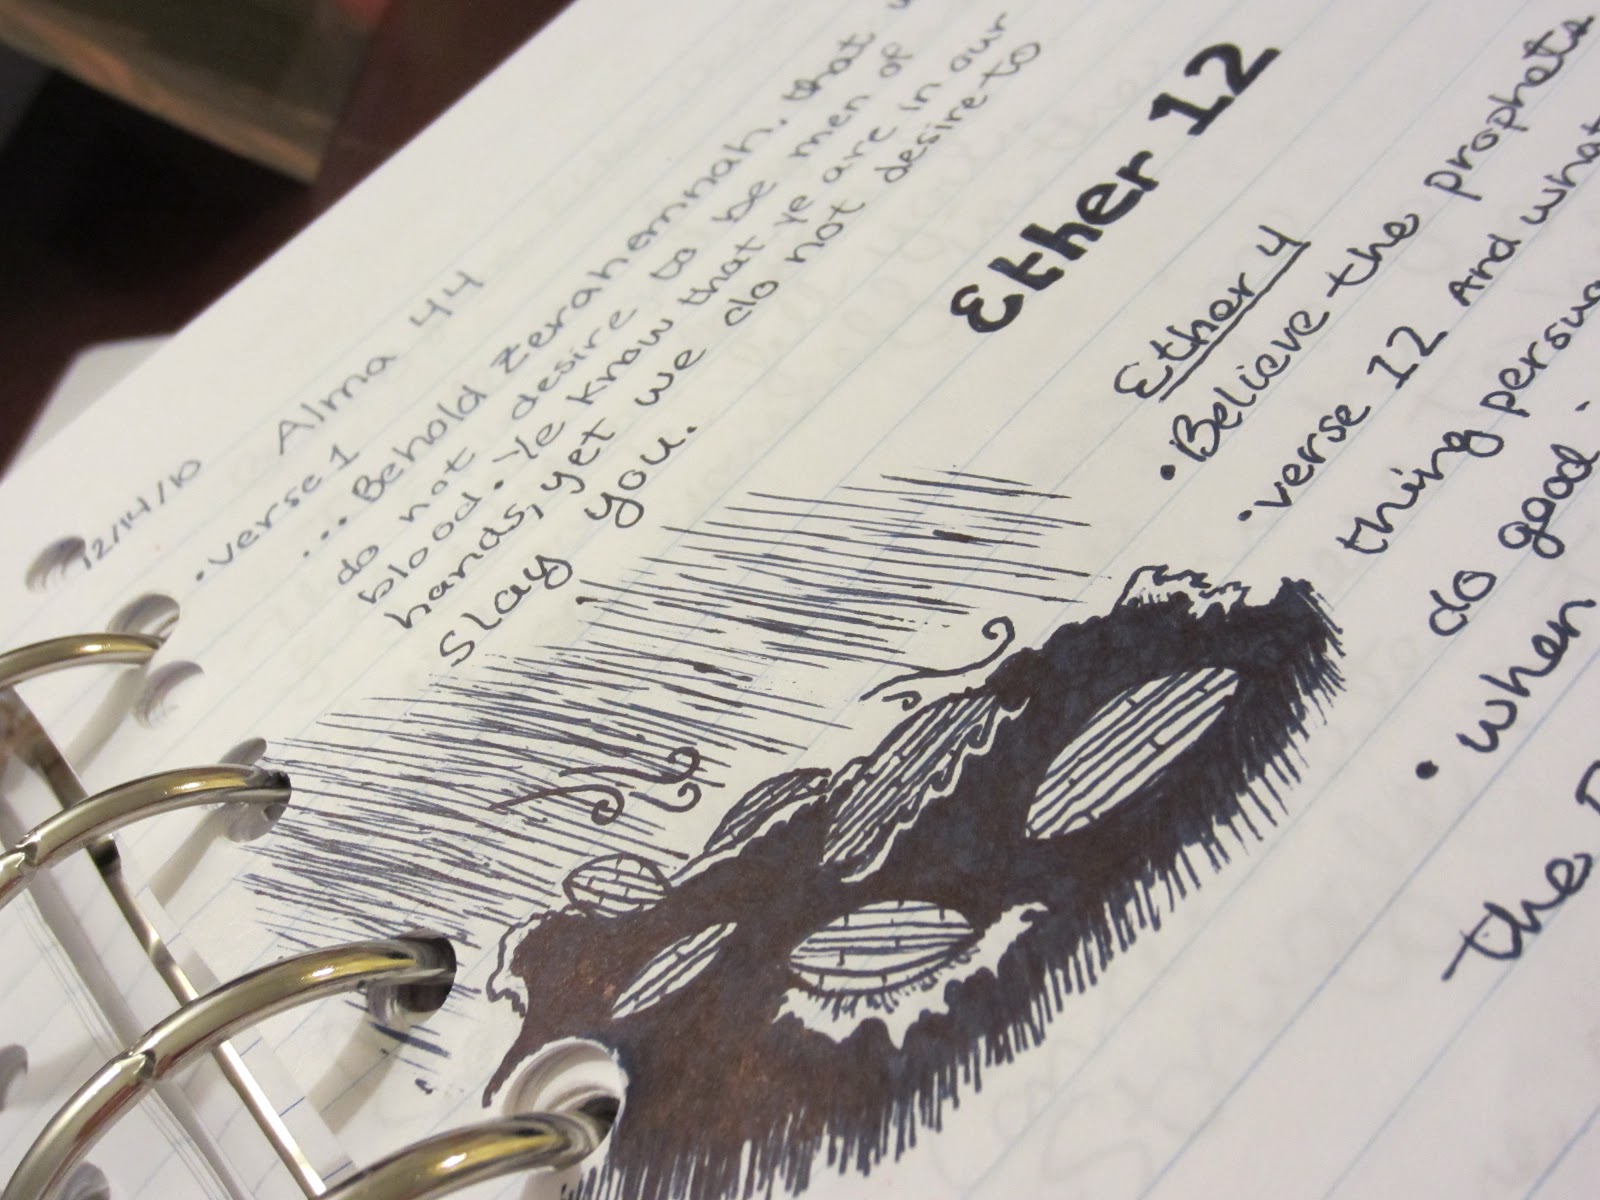 12/14/10 Alma 44
• verse 1
... Behold Zerahemnah, that
do not desire to be men of
blood. Ye know that ye are in our
hands, yet we do not desire to
slay you.
Ether 12
Ether 4
• Believe the prophets
• verse 12 And what
thing persua
do good.
• when
the